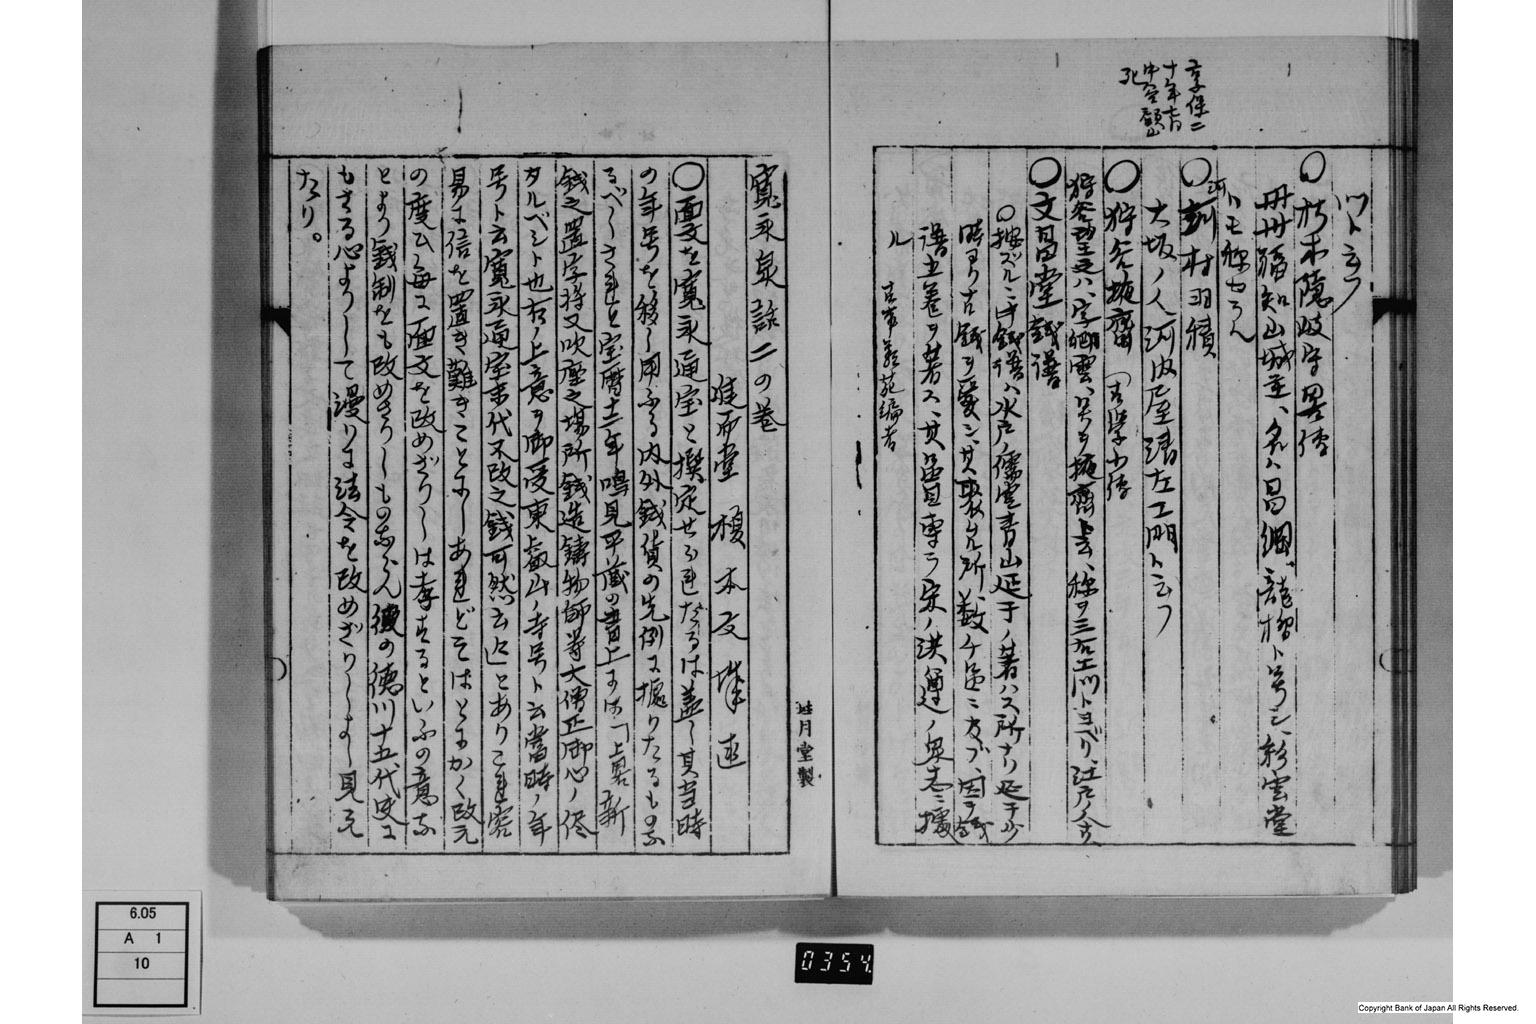 享保二
十年七月
中谷顧山
死
ハトラフ
○朽木隠岐守畧傳
丹州福知山城主、名ハ昌綱、龍橋ト号シ、杉雲堂
トモ称セラル
○河村羽積
大坂ノ人河内屋清左エ門ト云フ
○狩谷掖齋
狩谷望之ハ、字卿雲、号ヲ掖齋ト云、称ヲ三右エ門トヨベリ、江戸ノ人
○文昌堂銭譜
○按ズルニ此銭譜ハ水戸ノ儒官青山延于ノ著ハス所ナリ延于少
時ヨリ古銭ヲ愛シ其聚ル所、数ケ品ニ及ブ、因テ銭
譜五巻ヲ著ス、其品目専ラ宋ノ洪遵ノ泉志ニ據
ル
寛永泉話二の巻
進而堂 榎本文城述
○面文を寛永通宝と撰定せられたるは蓋し其当時
の年号を移し用ふる内外銭貨の先例に據りたるものな
るべしされど宝暦十二年鳴見平蔵の書上には「上畧新
銭之置字将又吹座之場所銭造鋳物師等大僧正御心ノ侭
タルベシト也右ノ上意ヲ御受東叡山ノ寺号ト云當時ノ年
号ト云寛永通宝末代不改之銭可然云々」とありこれ容
易に信を置き難きことなしあれどそはとにかく改元
の度ひ毎に面文を改めざりしは孝するといふの意な
とより銭制をも改めざりしものならん後の徳川十五代史に
もさる心ようして漫りに法令を改めざりしよし見え
たり。
月堂製
6.05
A 1
10
0354
Copyright Bank of Japan All Rights Reserved.